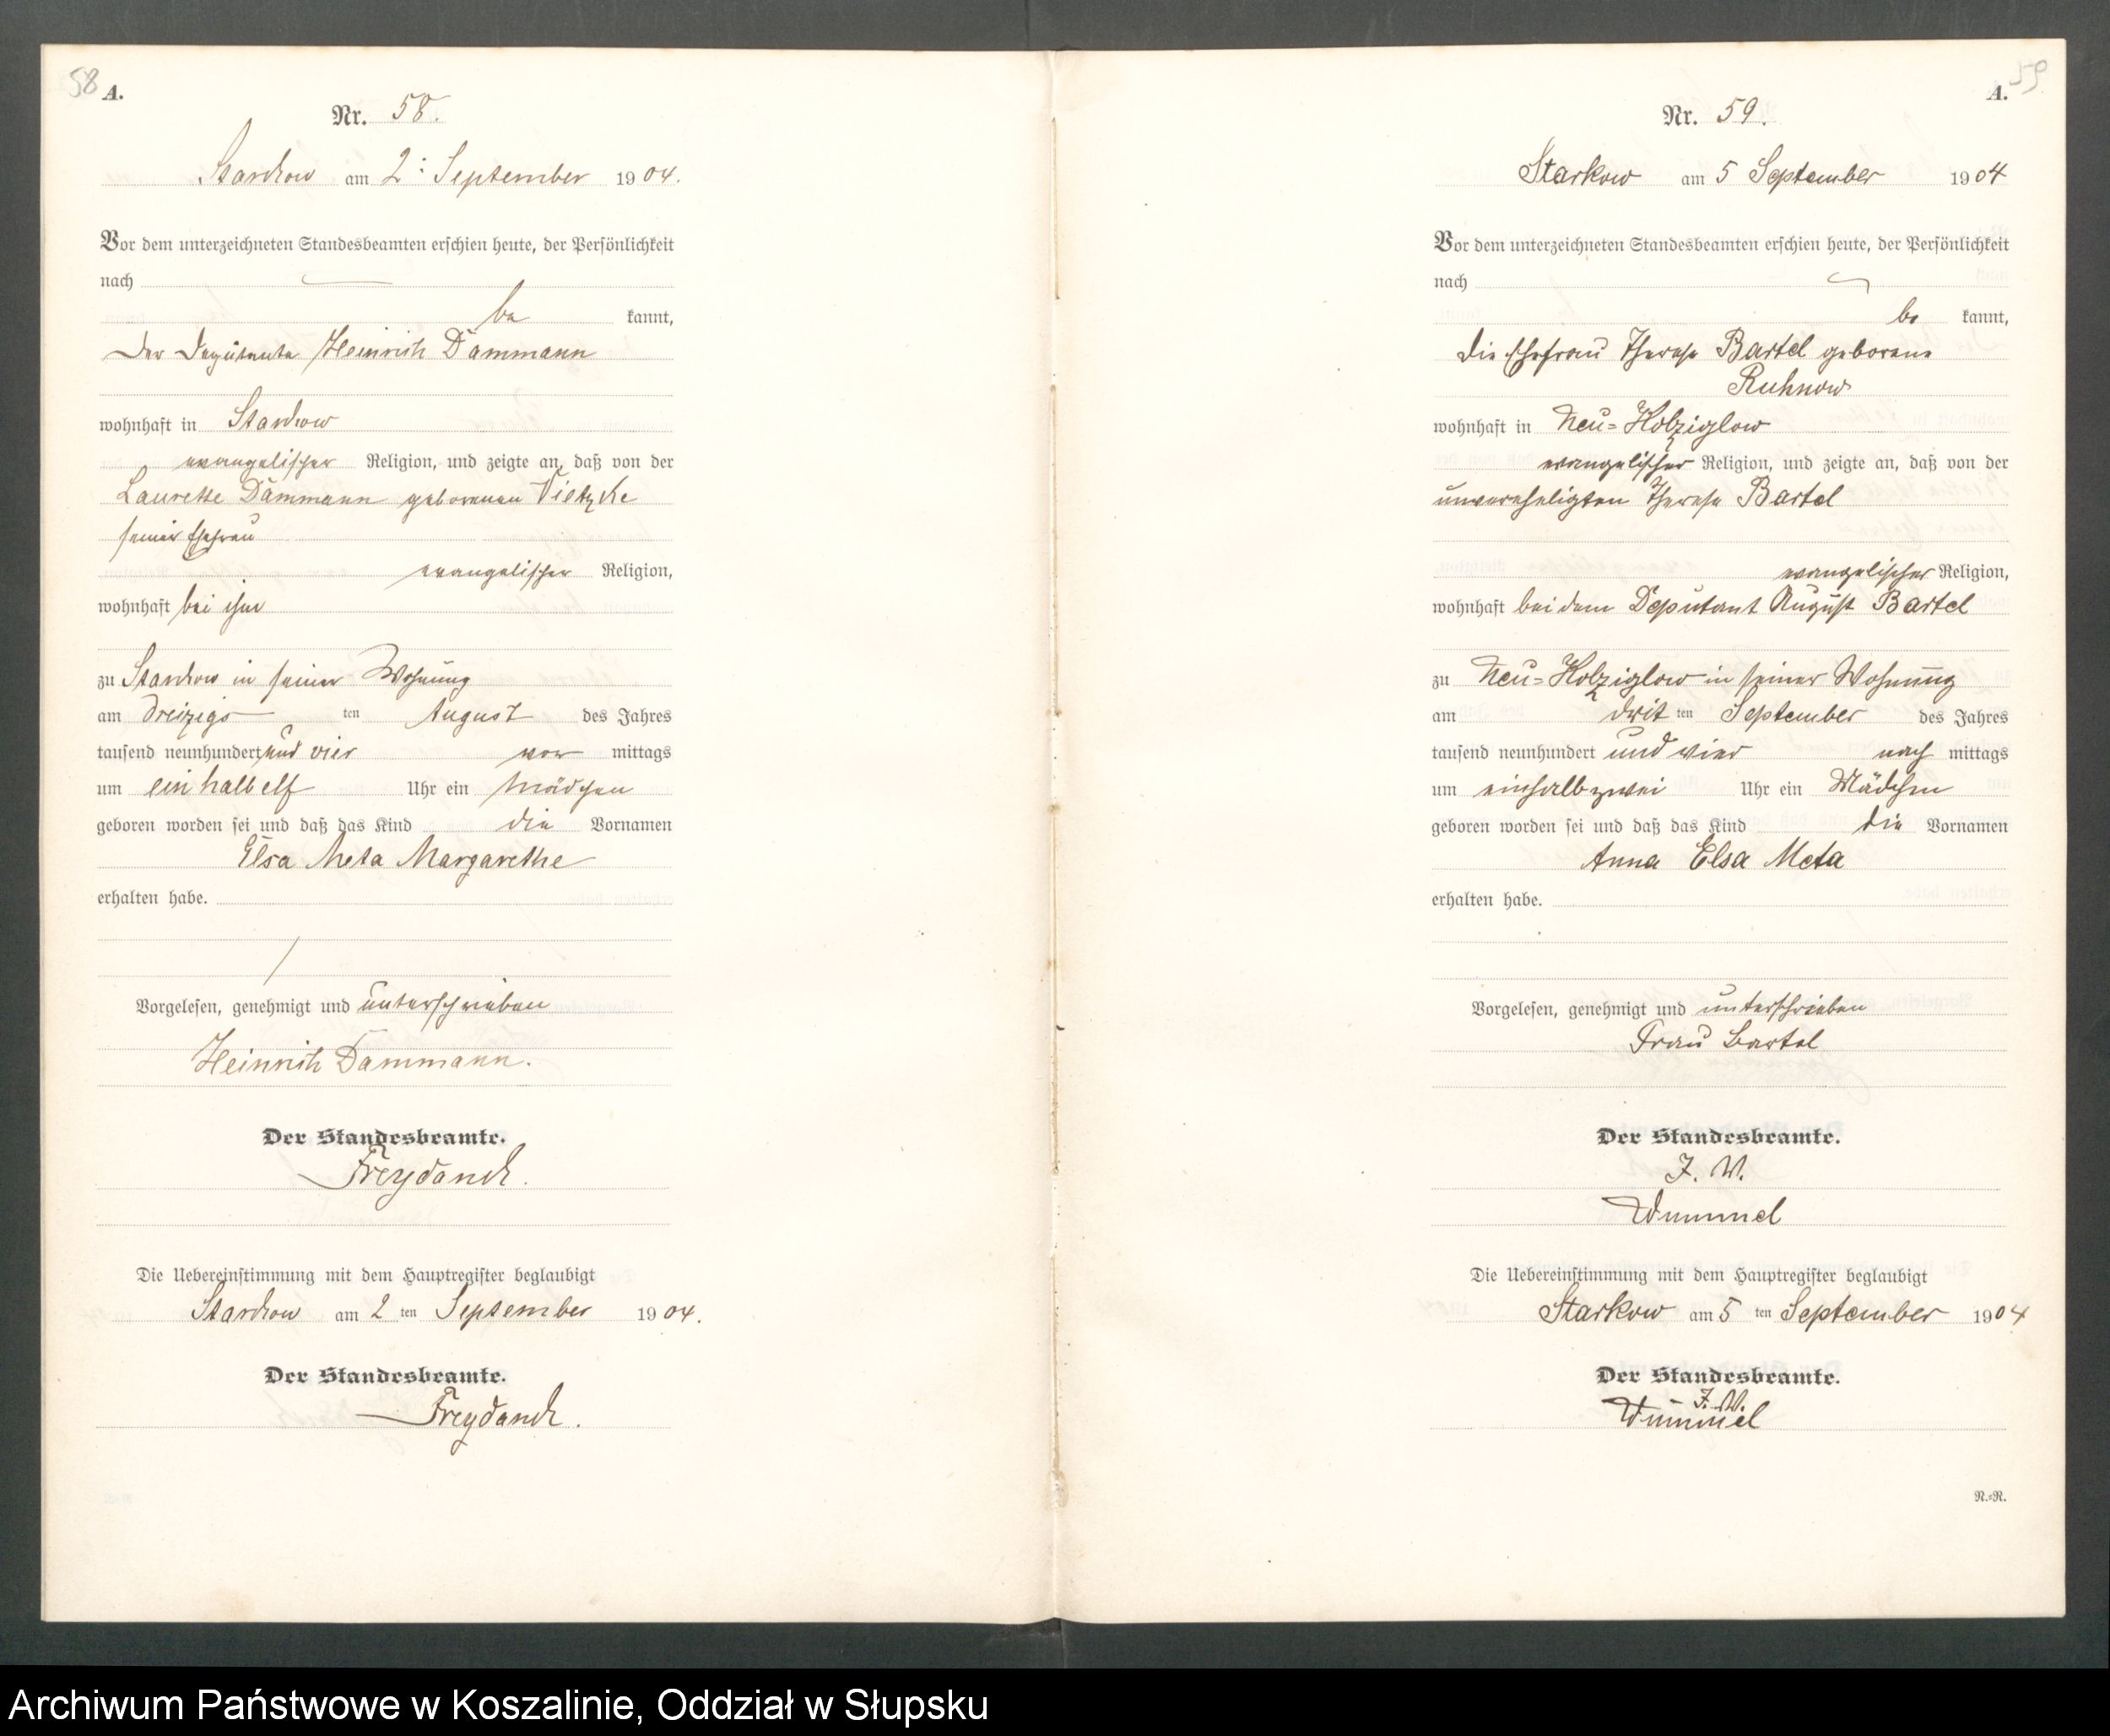 58
A.
Nr. 58.
Starkow am 2: September 1904.
Vor dem unterzeichneten Standesbeamten erschien heute, der Persönlichkeit
nach
be kannt,
der Deputante Heinrich Dammann
wohnhaft in Starkow
evangelischer Religion, und zeigte an, daß von der
Laurette Dammann geborenen Vietzke
seiner Ehefrau
evangelischer Religion,
wohnhaft bei ihm
zu Starkow in seiner Wohnung
am dreizigs ten August des Jahres
tausend neunhundert und vier vor mittags
um ein halb elf Uhr ein Mädchen
geboren worden sei und daß das Kind die Vornamen
Elsa Meta Margarethe
erhalten habe.
Vorgelesen, genehmigt und unterschrieben
Heinrich Dammann.
Der Standesbeamte.
Freydanck.
Die Uebereinstimmung mit dem Hauptregister beglaubigt
Starkow am 2 ten September 1904.
Der Standesbeamte.
Freydanck.
59
A.
Nr. 59.
Starkow am 5 September 1904
Vor dem unterzeichneten Standesbeamten erschien heute, der Persönlichkeit
nach
be kannt,
die Ehefrau Therese Bartel geborene
Ruhnow
wohnhaft in Neu=Kolziglow
evangelischer Religion, und zeigte an, daß von der
unvereheligten Therese Bartel
evangelischer Religion,
wohnhaft bei dem Deputant August Bartel
zu Neu=Kolziglow in seiner Wohnung
am drit ten September des Jahres
tausend neunhundert und vier nach mittags
um einhalb zwei Uhr ein Mädchen
geboren worden sei und daß das Kind die Vornamen
Anna Elsa Meta
erhalten habe.
Vorgelesen, genehmigt und unterschrieben
Frau Bartel
Der Standesbeamte.
J. V.
Wummel
Die Uebereinstimmung mit dem Hauptregister beglaubigt
Starkow am 5 ten September 1904
Der Standesbeamte.
J. V.
Wummel
R.=R.
Archiwum Państwowe w Koszalinie, Oddział w Słupsku